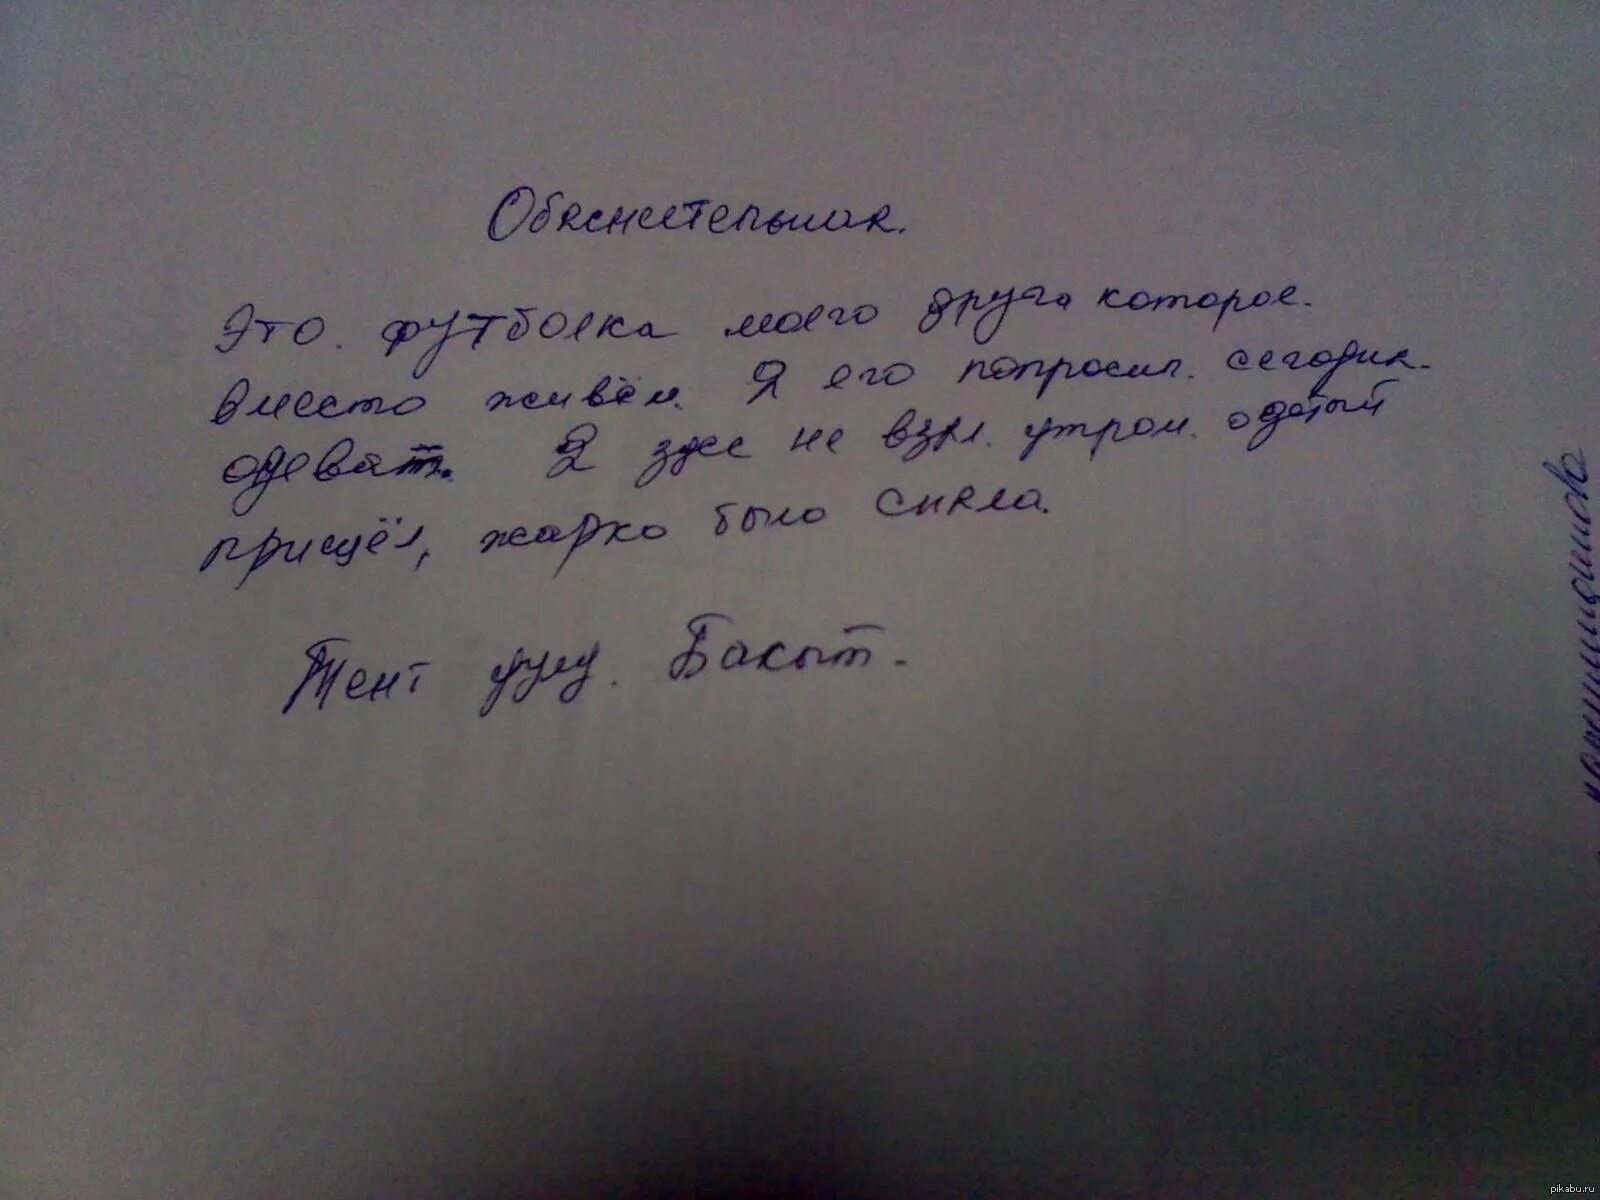 Обяснетельная.
Это. футболка моего друга которое.
вместо живём. Я его попросил. сегодня.
одеват. Я здес не взял. утром. одетый
прищёл, жарко было сняла.
Тент уулу. Бакыт.
pikabu.ru